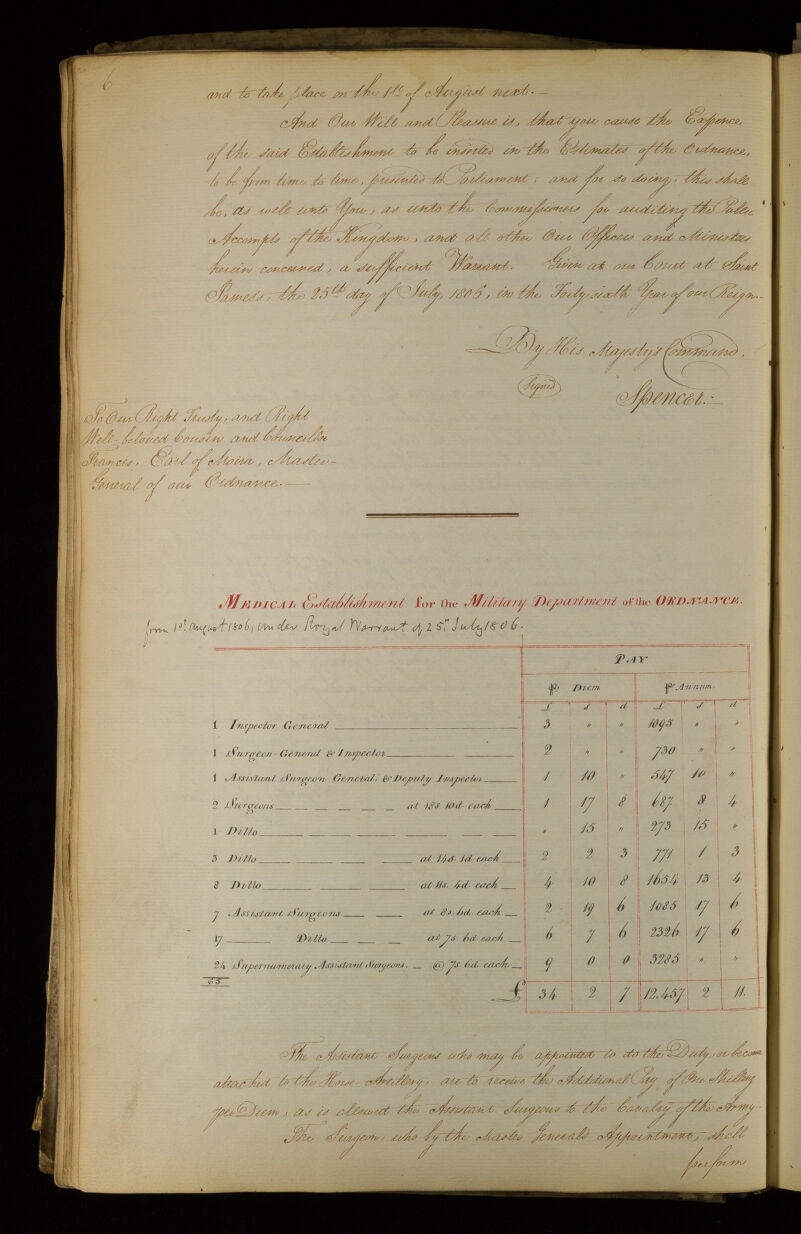 6
and to take place on the 1st of August next.—
And Our Will and Pleasure is, that you cause the Expence
of the said Establishment to be inserted in the Estimates of the Ordnance,
to be from time to time, presented to Parliament; and for so doing, this shall
be, as well unto You, as unto the Commissioners for auditing the Public
Accompts of the Kingdom, and all other Our Officers and Ministers
herein concerned, a sufficient Warrant. Given at our Court at Saint
James's, the 25th day of July, 1806, in the Forty sixth Year of our Reign.
By His Majesty's Command,
(Signed) Spencer.
To Our Right Trusty, and Right
Well-beloved Cousin and Councillor
Francis, Earl of Moira, Master-
General of our Ordnance.—
MEDICAL Establishment for the Military Department of the ORDNANCE.
from 1st August 1806, under Royal Warrant of 25th July 1806.
PAY
℔ Diem ℔ Annum
£ s d £ s d
1 Inspector General 3 " " 1095 " "
1 Surgeon General & Inspector 2 " " 730 " "
1 Assistant Surgeon General, & Deputy Inspector 1 10 " 547 10 "
2 Surgeons at 18s. 10d. each 1 17 8 687 8 4
1 Ditto " 15 " 273 15 "
3 Ditto at 14s. 1d. each 2 2 3 771 1 3
8 Ditto at 11s. 4d. each 4 10 8 1654 13 4
7 Assistant Surgeons at 8s. 6d. each 2 19 6 1085 17 6
17 Ditto at 7s. 6d. each 6 7 6 2326 17 6
24 Supernumerary Assistant Surgeons. @ 7s. 6d. each 9 0 0 3285 " "
65
£ 34 2 7 12,457 2 11.
The Assistant Surgeons who may be appointed to do the Duty, or become
attached to the Horse Artillery, are to receive the Additional Pay of One Shilling
per Diem, as is allowed the Assistant Surgeons to the Cavalry of the Army.
The Surgeon, who by the Master General's Appointment, shall
perform